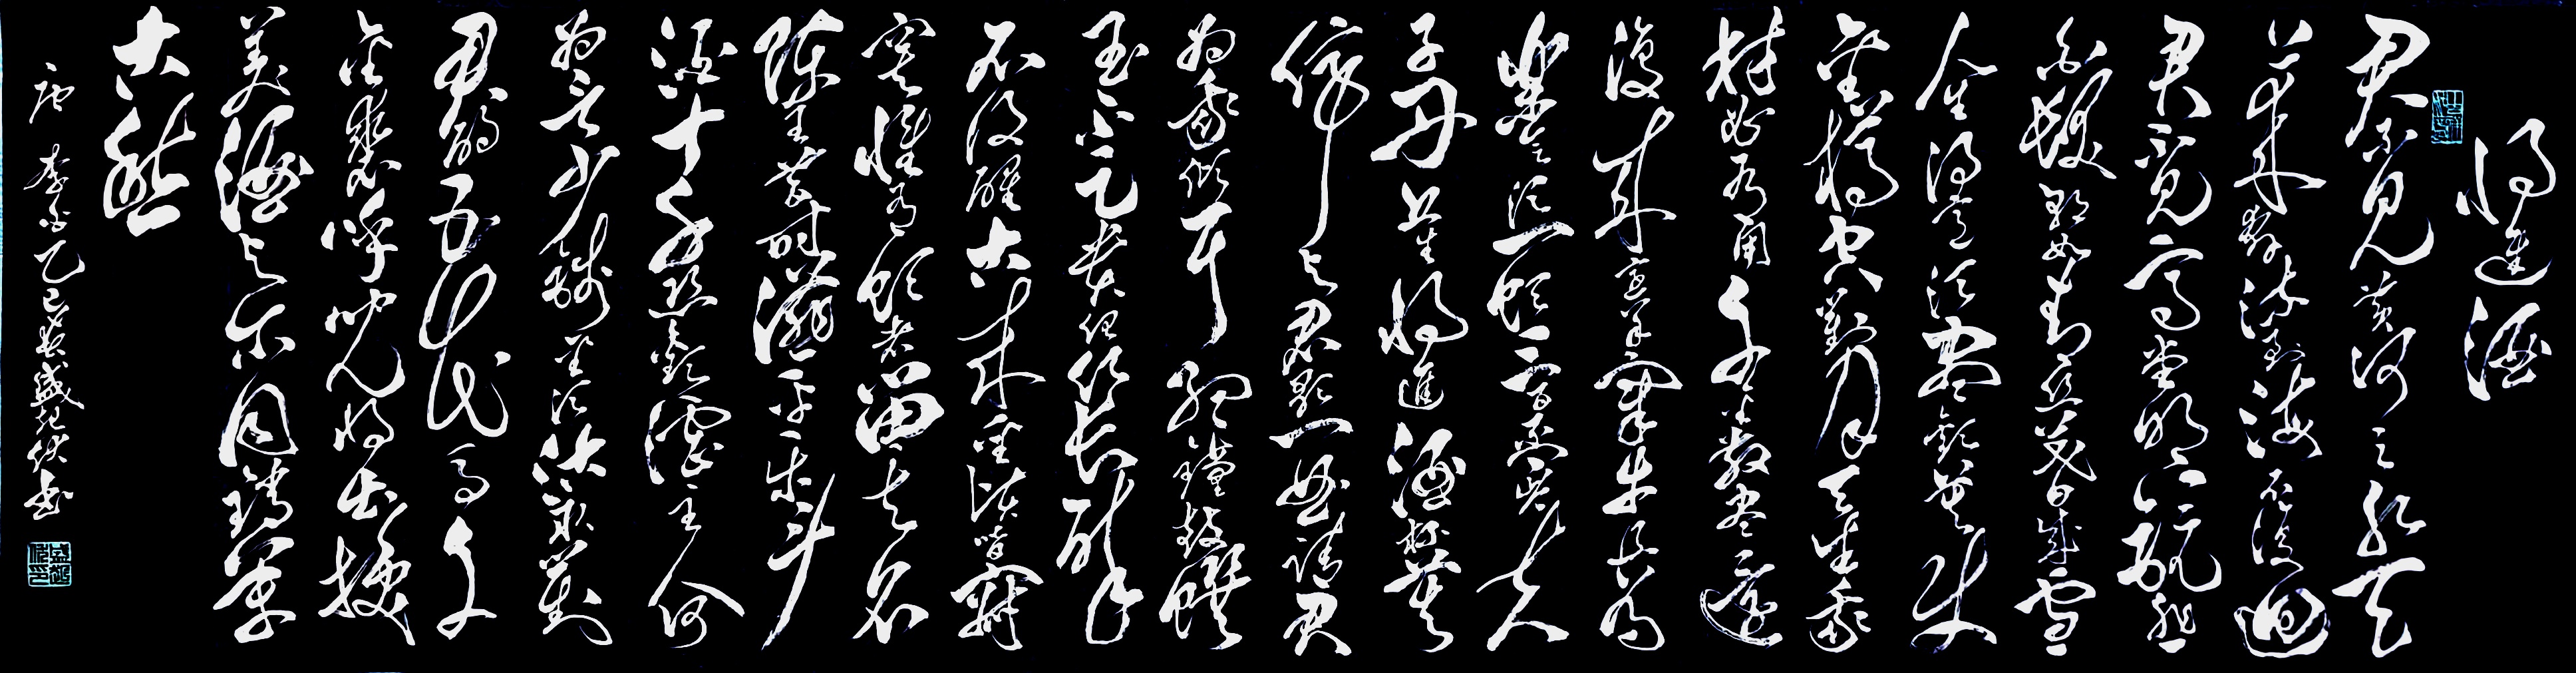 將進酒
君不見黃河之水天
上來奔流到海不復迴
君不見高堂明鏡悲
白髮朝如青絲暮成雪
人生得意須盡歡莫使
金樽空對月天生我
材必有用千金散盡還
復來烹羊宰牛且為
樂會須一飲三百杯岑夫
子丹丘生將進酒杯莫
停與君歌一曲請君
為我傾耳聽鐘鼓饌
玉不足貴但願長醉
不復醒古來聖賢皆寂
寞惟有飲者留其名
陳王昔時宴平樂斗
酒十千恣歡謔主人何
為言少錢徑須沽取對
君酌五花馬千
金裘呼兒將出換
美酒與爾同銷萬
古愁
唐 李白 乙巳春盛